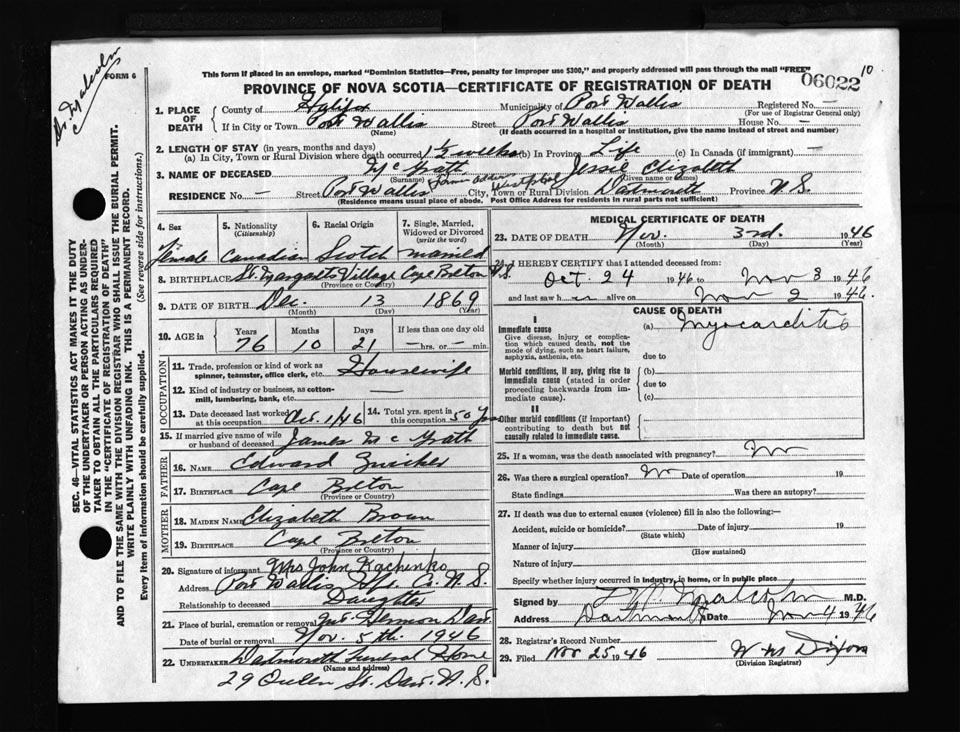 Dr. Malcolm
FORM 6
This form if placed in an envelope, marked "Dominion Statistics—Free, penalty for improper use $300," and properly addressed will pass through the mail "FREE"
06022 10
PROVINCE OF NOVA SCOTIA—CERTIFICATE OF REGISTRATION OF DEATH
1. PLACE OF DEATH County of Halifax Municipality of Port Wallis Registered No. —
(For use of Registrar General only)
If in City or Town Port Wallis Street Port Wallis House No. —
(Name) (If death occurred in a hospital or institution, give the name instead of street and number)
2. LENGTH OF STAY (in years, months and days)
(a) In City, Town or Rural Division where death occurred 1½ weeks (b) In Province Life (c) In Canada (if immigrant) —
3. NAME OF DECEASED McGrath Jessie Elizabeth
(Surname) (Given name or names)
RESIDENCE No. — Street Port Wallis City, Town or Rural Division Dartmouth Province N.S.
(Residence means usual place of abode, Post Office Address for residents in rural parts not sufficient)
SEC. 46—VITAL STATISTICS ACT MAKES IT THE DUTY
OF THE UNDERTAKER OR PERSON ACTING AS UNDER-
TAKER TO OBTAIN ALL THE PARTICULARS REQUIRED
IN THE "CERTIFICATE OF REGISTRATION OF DEATH"
AND TO FILE THE SAME WITH THE DIVISION REGISTRAR WHO SHALL ISSUE THE BURIAL PERMIT.
WRITE PLAINLY WITH UNFADING INK. THIS IS A PERMANENT RECORD.
Every item of information should be carefully supplied. (See reverse side for instructions.)
4. Sex 5. Nationality (Citizenship) 6. Racial Origin 7. Single, Married, Widowed or Divorced (write the word)
Female Canadian Scotch married
8. BIRTHPLACE St. Margarets Village Cape Breton N.S.
(Province or Country)
9. DATE OF BIRTH Dec. 13 1869
(Month) (Day) (Year)
10. AGE in Years Months Days If less than one day old
76 10 21 — hrs. or — min.
OCCUPATION
11. Trade, profession or kind of work as spinner, teamster, office clerk, etc. Housewife
12. Kind of industry or business, as cotton-mill, lumbering, bank, etc. —
13. Date deceased last worked at this occupation Oct. 1/46 14. Total yrs. spent in this occupation 50 Yrs
15. If married give name of wife or husband of deceased James McGrath
FATHER
16. NAME Edward Zwicker
17. BIRTHPLACE Cape Breton
(Province or Country)
MOTHER
18. MAIDEN NAME Elizabeth Brown
19. BIRTHPLACE Cape Breton
(Province or Country)
20. Signature of informant Mrs John Kachenko
Address Port Wallis Hfx. C. N.S.
Relationship to deceased Daughter
21. Place of burial, cremation or removal Mt. Hermon Dart.
Date of burial or removal Nov. 5th. 1946
22. UNDERTAKER Dartmouth Funeral Home
(Name and address)
29 Queen St. Dart. N.S.
MEDICAL CERTIFICATE OF DEATH
23. DATE OF DEATH Nov. 3rd. 1946
(Month) (Day) (Year)
24. I HEREBY CERTIFY that I attended deceased from:
Oct. 24 1946 to Nov 3 1946
and last saw her alive on Nov 2 1946.
CAUSE OF DEATH
I
Immediate cause (a) Myocarditis
Give disease, injury or complication which caused death, not the mode of dying, such as heart failure, asphyxia, asthenia, etc. due to
Morbid conditions, if any, giving rise to immediate cause (stated in order proceeding backwards from immediate cause). (b)
due to
(c)
II
Other morbid conditions (if important) contributing to death but not causally related to immediate cause.
25. If a woman, was the death associated with pregnancy? No
26. Was there a surgical operation? No Date of operation 19
State findings Was there an autopsy?
27. If death was due to external causes (violence) fill in also the following:—
Accident, suicide or homicide? Date of injury 19
(State which)
Manner of injury
(How sustained)
Nature of injury
Specify whether injury occurred in industry, in home, or in public place
Signed by Malcolm M.D.
Address Dartmouth Date Nov 4 1946
28. Registrar's Record Number
29. Filed Nov 25 1946 W M Dixon
(Division Registrar)